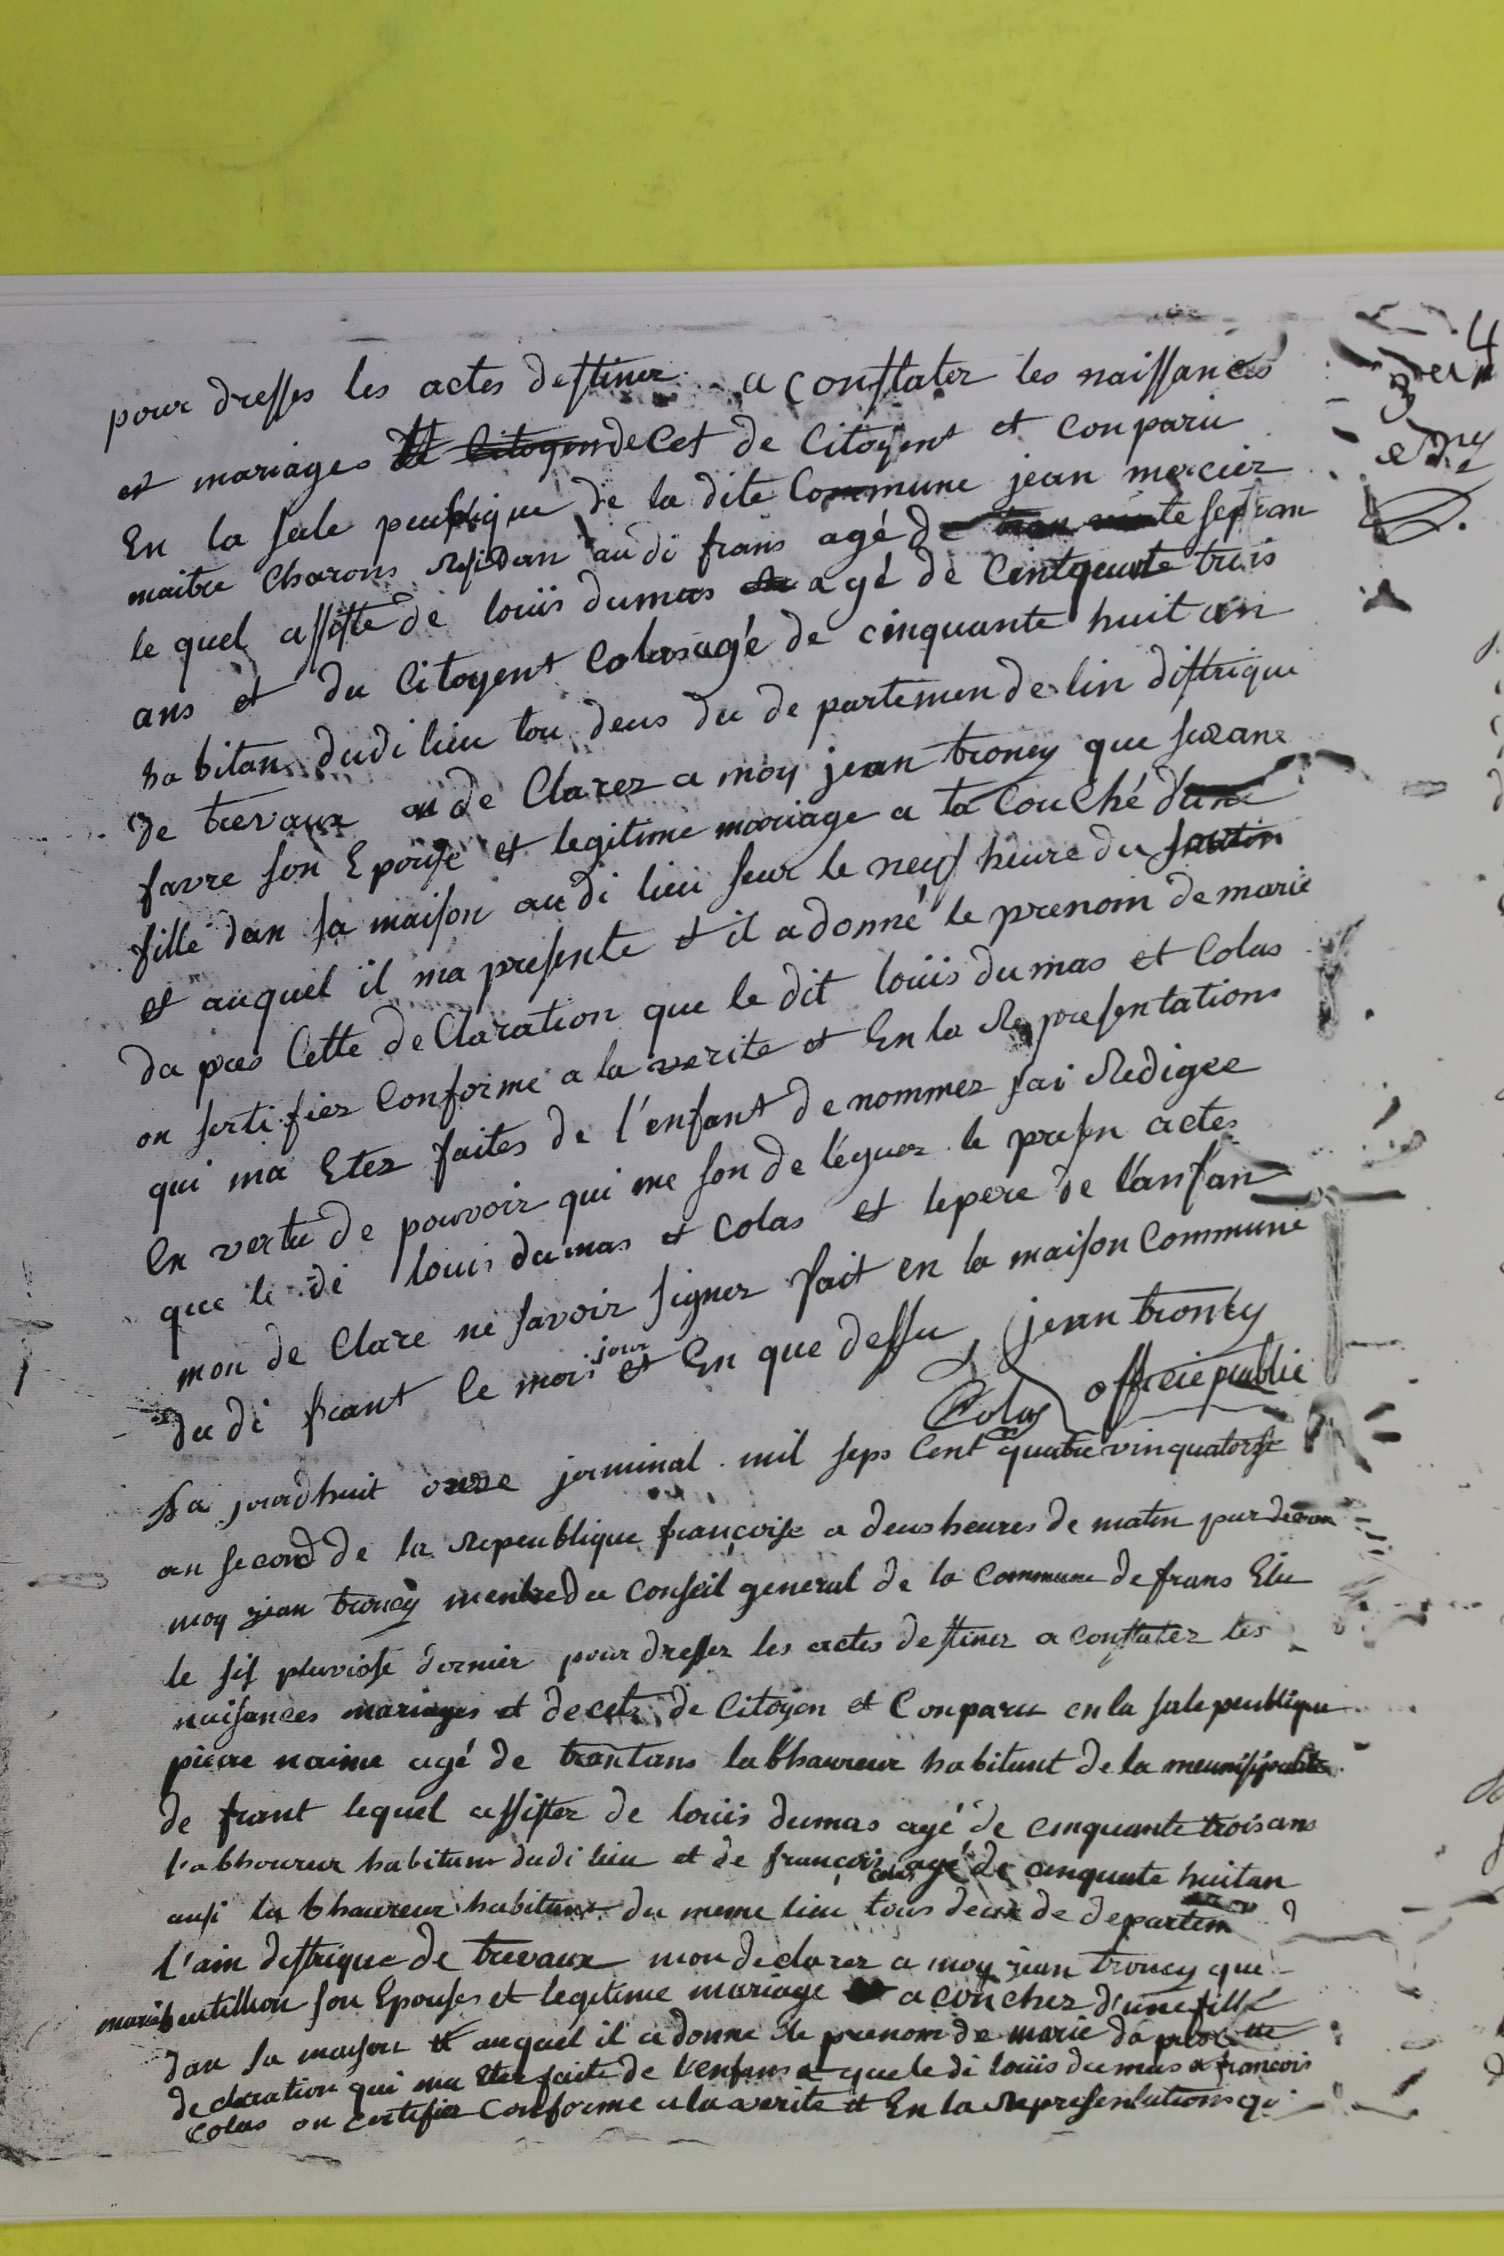 4
pour dresses les actes destiner a constater les naissances
et mariages et decet de Citoyent et conparu
En la sale peublique de la dite Commune jean mercier
maitre Charons residan audi frans agé de vinte sept an
le quel assiste de louis dumas agé de Cintquante trois
ans et du Citoyent Colas agé de cinquante huit an
habitan dudi lieu tou deus du departemen de lin distrique
de trevaux de Clarez a moy jean troncy que suzane
favre son Epouse et legitime mariage a ta Couché d'une
fille dan sa maison audi lieu seur le neuf heure du
et auquel il ma presente et il a donné le prenom de marie
da pres Cette deClaration que le dit louis dumas et Colas
on sertifier Conforme a la verite et En la Representations
qui ma Etez faites de l'enfant denommez jai Redigee
En vertu de pouvoir qui me son deléguez le presen actes
que le di louis dumas et Colas et le pere de l'anfan
mon de Clare ne savoir signer fait en la maison Commune
du di frant le mois jour et En que dessu jean troncy
Colas officie public
Sa jourdhuit onze jerminal mil seps Cent quatre vinquatorse
an second de la Republique françoise a deus heures de matin par devan
moy jean troncy menbre du Conseil general de la Commune de frans Elu
le sis pluviose dernier pour dresser les actes destinez a constatez les
naisances mariages et decets de Citoyen et Conparu en la sale peublique
pierre naime agé de trantans labhaureur habitant de la meunisipalite
de frant lequel assister de louis dumas agé de cinquante trois ans
l'abhoureur habitant dudi lieu et de françois colas agé de cinquante huitan
ausi labhaureur habitant du meme lieu tous deux de departem
l'ain distrique de trevaux mon declarez a moy jean troncy que
marie son Epouses et legitime mariage a couchez d'une fille
dan sa maison et auquel il a donne le prenom de marie da pres cette
declaration qui ma Etez faite de l'enfans et que le di louis dumas et francois
Colas on certifier Conforme a la verite et En la Representations qui